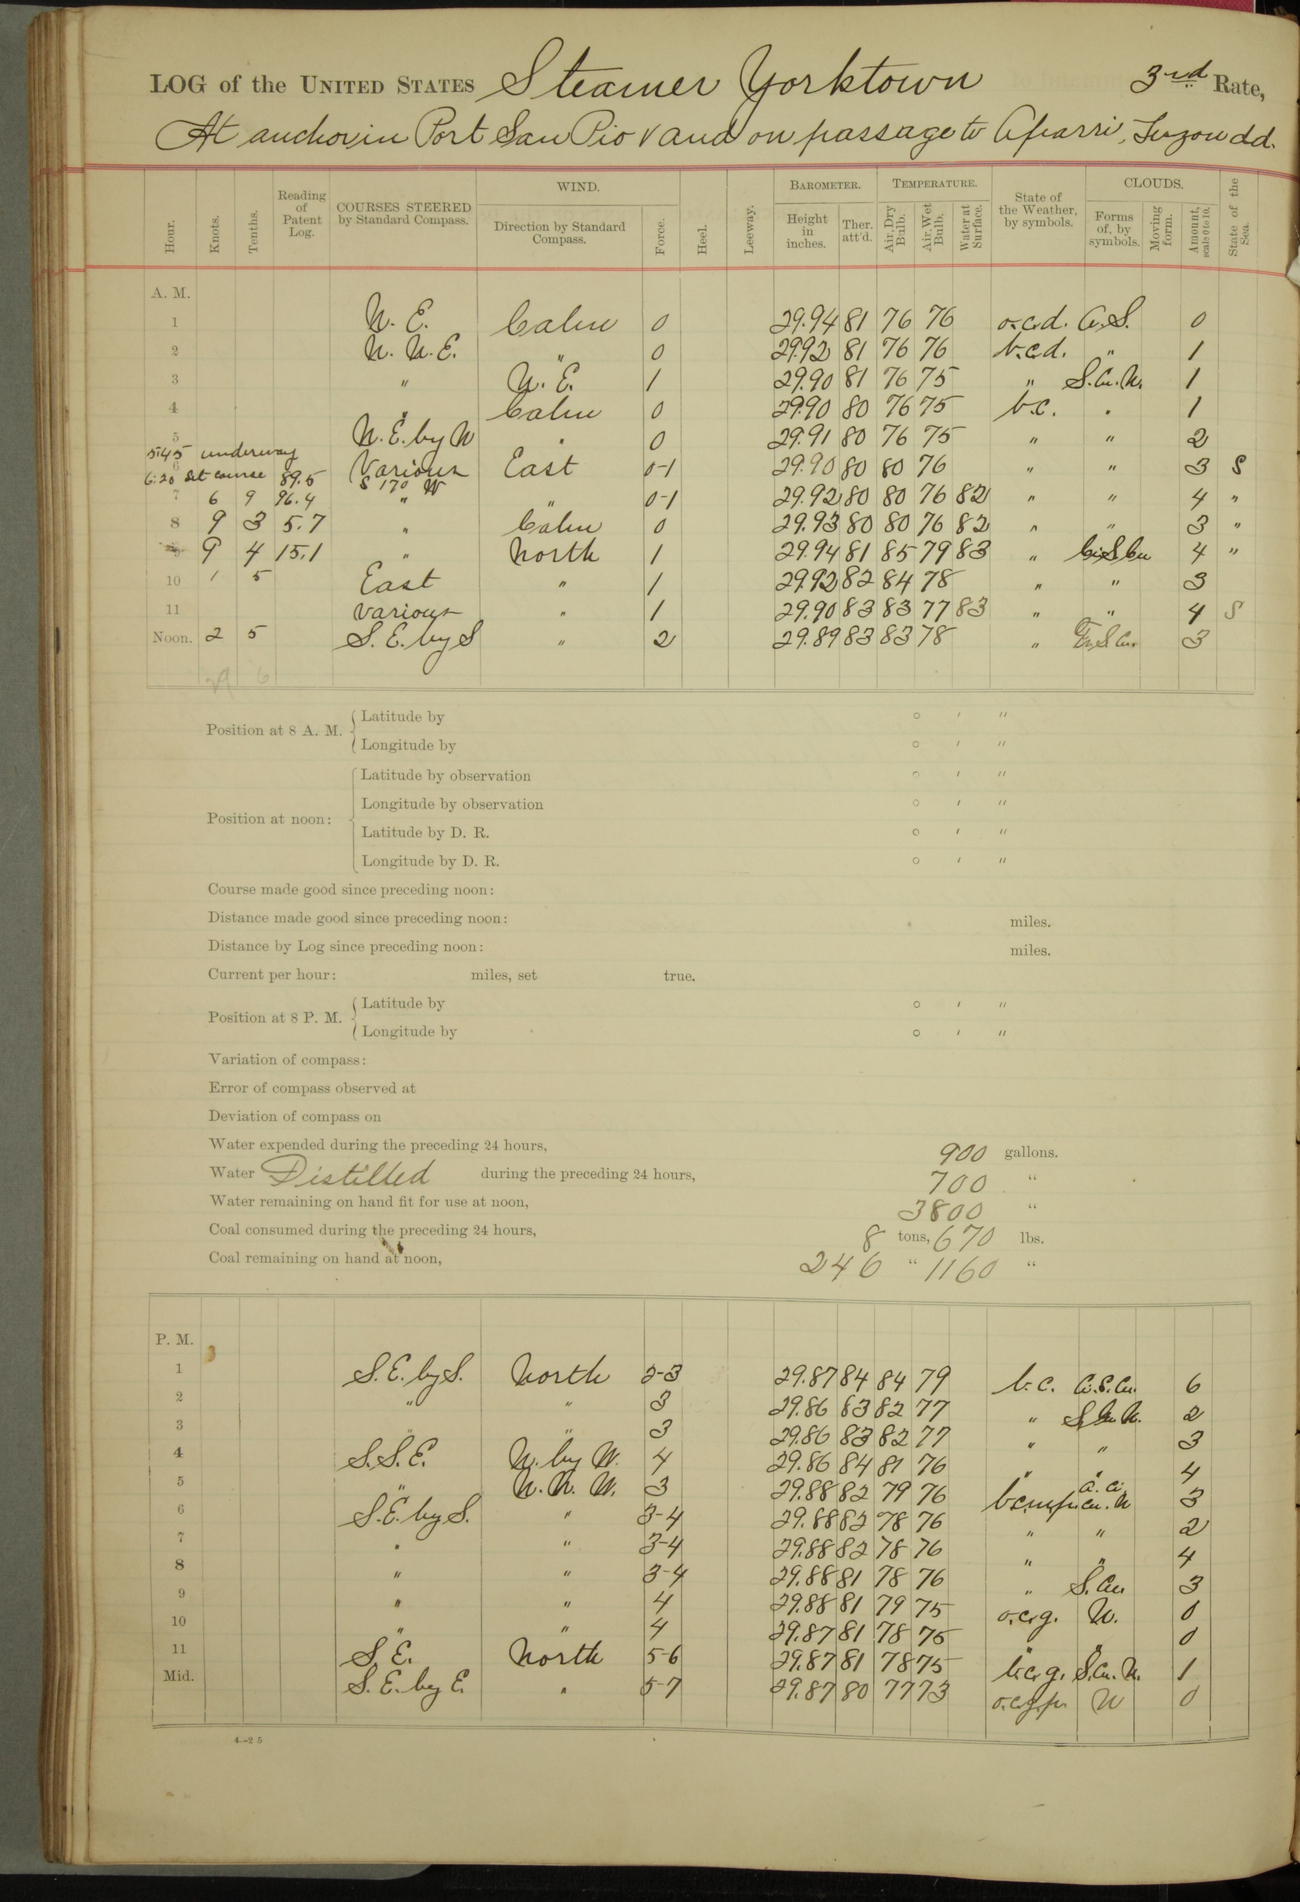 LOG of the UNITED STATES Steamer Yorktown 3rd Rate,
At anchor in Port San Pio V and on passage to Aparri, Luzon
Hour. Knots. Tenths. Reading of Patent Log. COURSES STEERED by Standard Compass. WIND. Direction by Standard Compass. Force. Heel. Leeway. BAROMETER. Height in inches. Ther. att'd. TEMPERATURE. Air, Dry Bulb. Air, Wet Bulb. Water at Surface. State of the Weather, by symbols. CLOUDS. Forms of, by symbols. Moving form. Amount, scale 0 to 10. State of the Sea.
A. M.
1 N. E. Calm 0 29.94 81 76 76 o.c.d. 0
2 N. N. E. " 0 29.92 81 76 76 b.c.d. " 1
3 " N. E. 1 29.90 81 76 75 " S.Cu.N. 1
4 " Calm 0 29.90 80 76 75 b.c. " 1
5 N. E. by N " 0 29.91 80 76 75 " " 2
5:45 underway
6 Various East 0-1 29.90 80 80 76 " " 3 S
6:20 Set course 89.5 S 17° W
7 6 9 96.4 " " 0-1 29.92 80 80 76 82 " " 4 "
8 9 3 5.7 " Calm 0 29.93 80 80 76 82 " " 3 "
9 9 4 15.1 " North 1 29.94 81 85 79 83 " Ci.S.Cu 4 "
10 1 5 East " 1 29.92 82 84 78 " " 3
11 Various " 1 29.90 83 83 77 83 " " 4 S
Noon. 2 5 S. E. by S " 2 29.89 83 83 78 " 3
29 6
Position at 8 A. M. Latitude by ° ′ ″
Longitude by ° ′ ″
Position at noon: Latitude by observation ° ′ ″
Longitude by observation ° ′ ″
Latitude by D. R. ° ′ ″
Longitude by D. R. ° ′ ″
Course made good since preceding noon:
Distance made good since preceding noon: miles.
Distance by Log since preceding noon: miles.
Current per hour: miles, set true.
Position at 8 P. M. Latitude by ° ′ ″
Longitude by ° ′ ″
Variation of compass:
Error of compass observed at
Deviation of compass on
Water expended during the preceding 24 hours, 900 gallons.
Water Distilled during the preceding 24 hours, 700 "
Water remaining on hand fit for use at noon, 3800 "
Coal consumed during the preceding 24 hours, 8 tons, 670 lbs.
Coal remaining on hand at noon, 246 " 1160 "
P. M.
1 S. E. by S. North 2-3 29.87 84 84 79 b.c. Ci.S.Cu. 6
2 " " 3 29.86 83 82 77 " S.Cu.N. 2
3 " " 3 29.86 83 82 77 " " 3
4 S. S. E. N. by W. 4 29.86 84 81 76 " " 4
5 " N. N. W. 3 29.88 82 79 76 Cu. N 3
6 S. E. by S. " 3-4 29.88 82 78 76 " " 2
7 " " 3-4 29.88 82 78 76 " " 4
8 " " 3-4 29.88 81 78 76 " S.Cu. 3
9 " " 4 29.88 81 79 75 o.c.g. N. 0
10 " " 4 29.87 81 78 75 " " 0
11 S. E. North 5-6 29.87 81 78 75 b.c.g. S.Cu.N. 1
Mid. S. E. by E. " 5-7 29.87 80 77 73 N 0
4—25